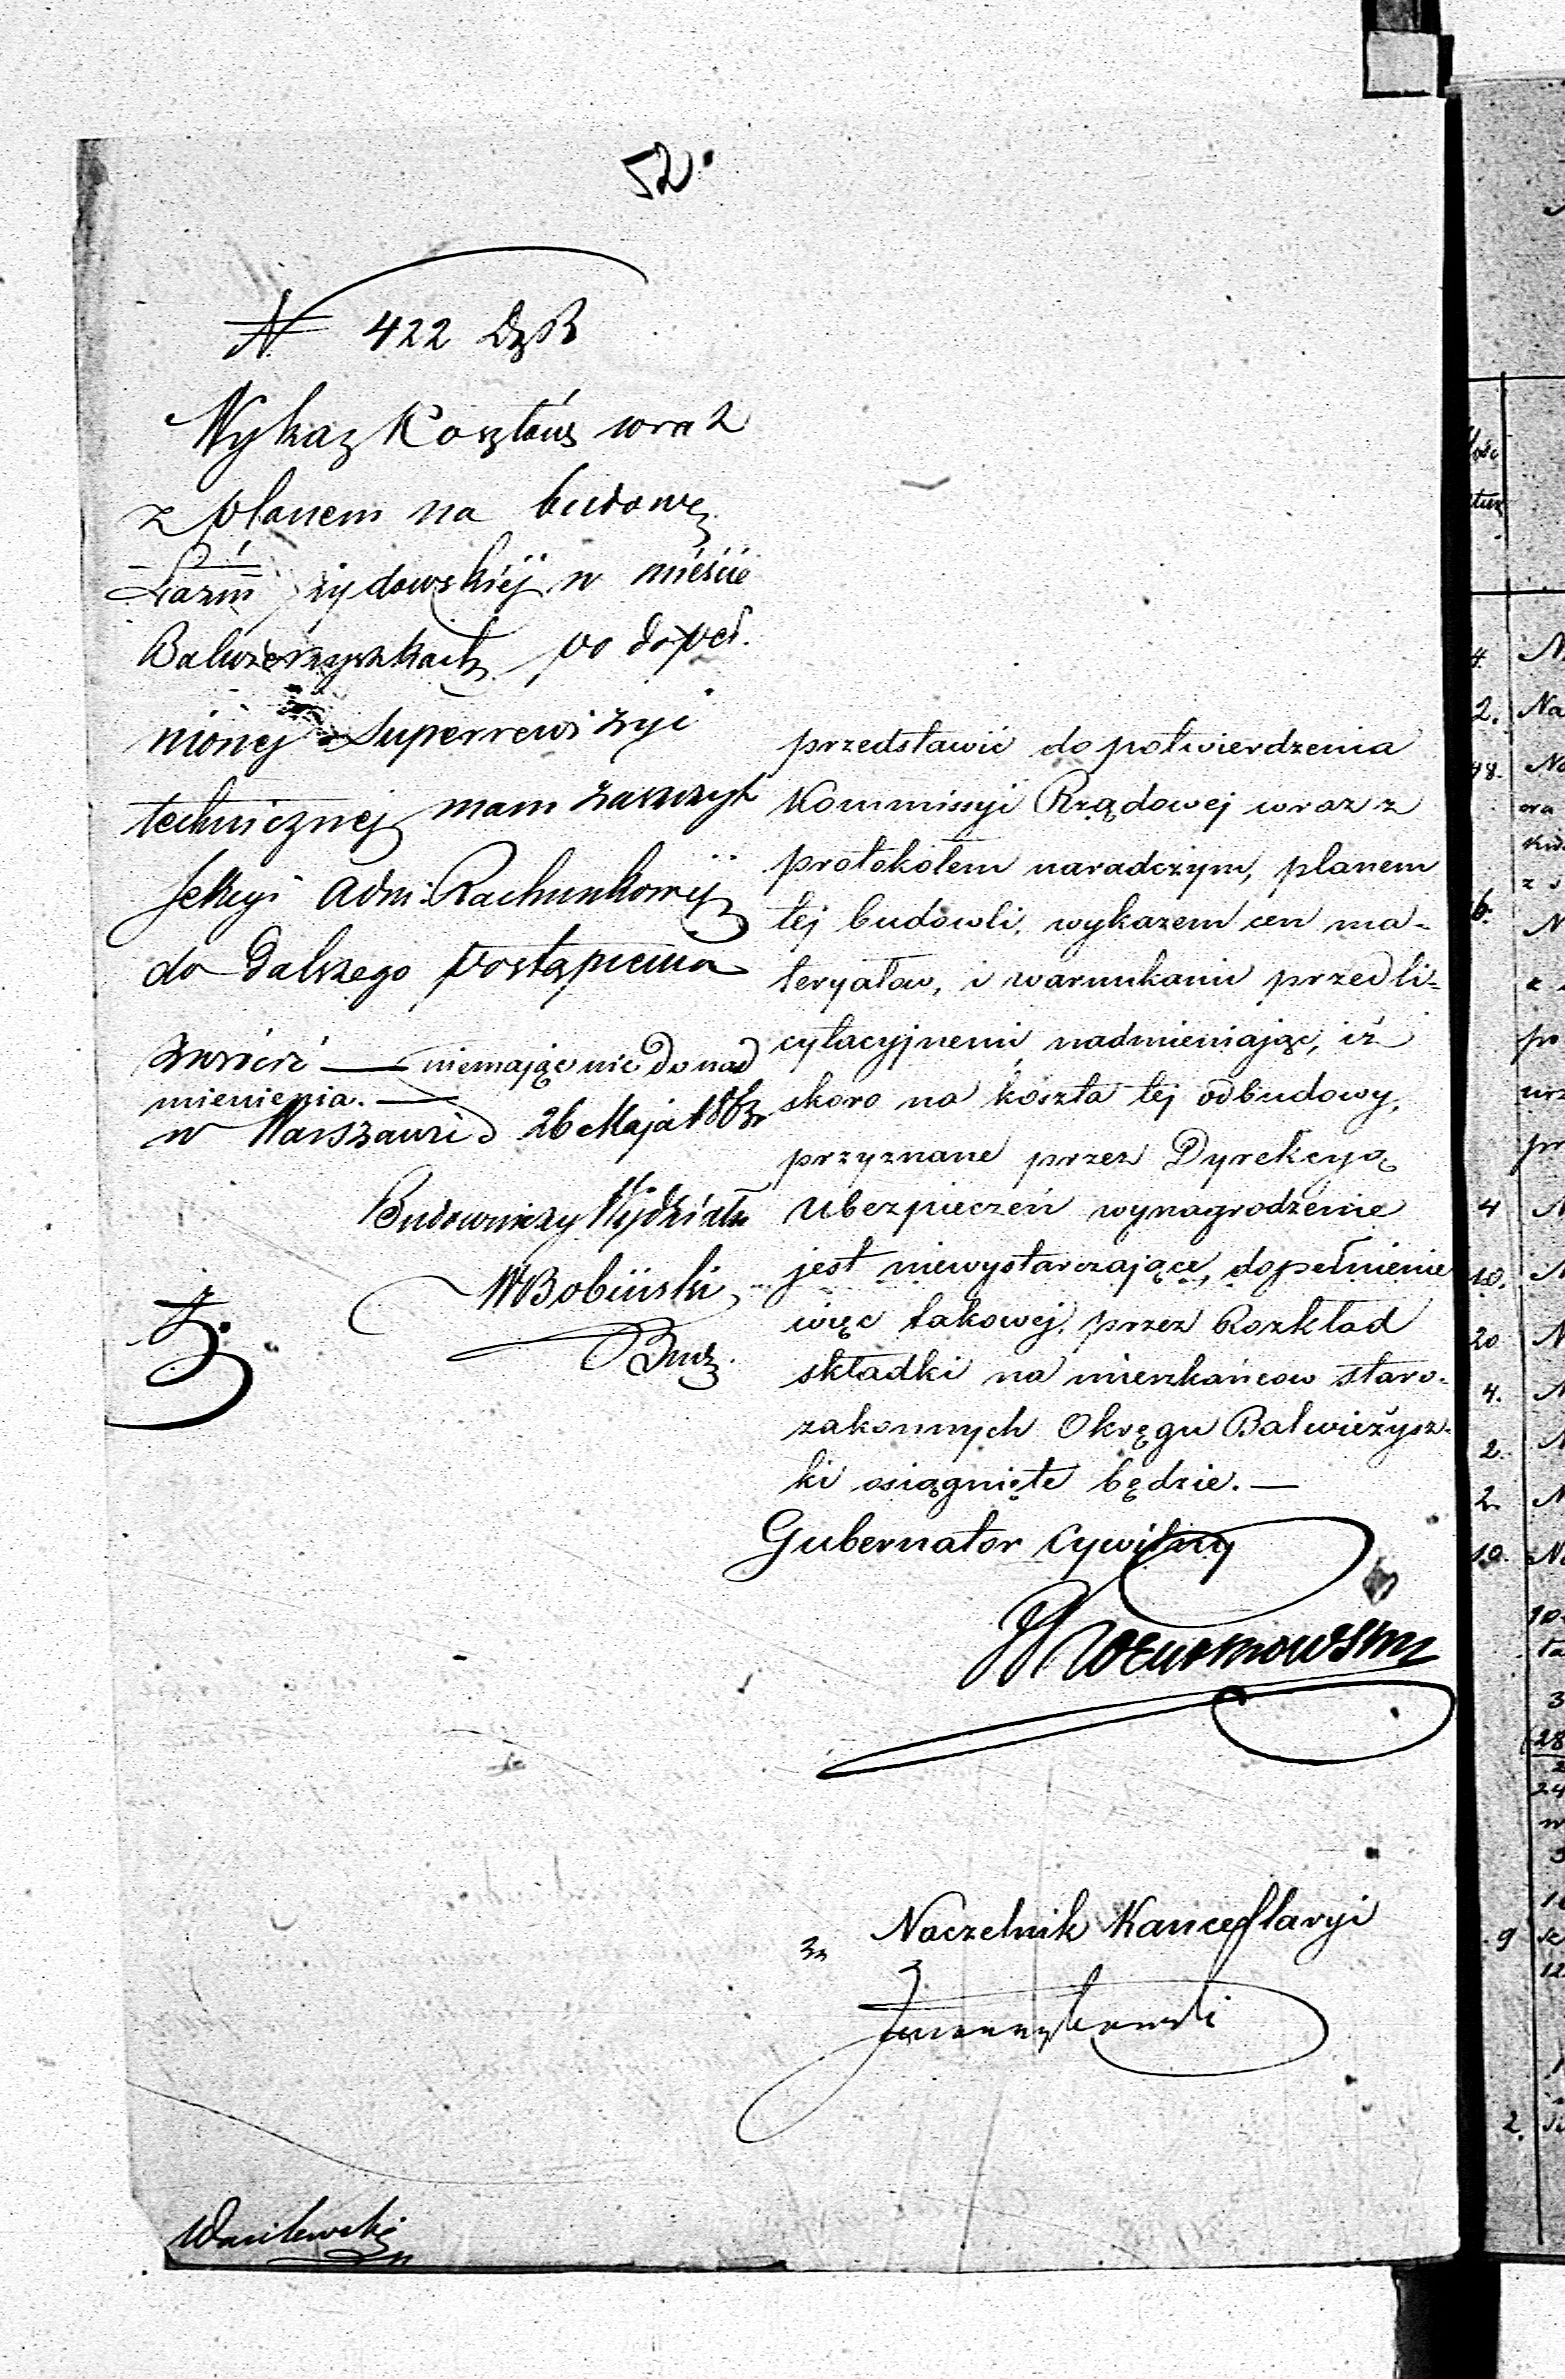 52.
N 422 DzB
Wykaz Kosztów wraz
z planem na budowę
Łazni żydowskiéj w mieście
Balwierzyszkach po dopeł.
nionej Superrewizyi
technicznej mam zaszczyt
Sekcyi Adm: Rachunkowej
do dalszego postąpienia
zwrócić — niemając nic do nad
mienienia. —
w Warszawie d 26 Maja 1863 r
Budowniczy Wydziału
WBobiński
Bud.
przedstawić do potwierdzenia
Kommissyi Rządowej wraz z
protokołem naradczym, planem
tej budowli, wykazem cen ma-
teryałow, i warunkami przedli-
cytacyjnemi, nadmieniając, iż
skoro na koszta tej odbudowy,
przyznane przez Dyrekcyą
Ubezpieczeń wynagrodzenie
jest niewystarczające, dopełnienie
więc takowej, przez Rozkład
składki na mieszkańcow staro-
zakonnych Okręgu Balwieżysz-
ki osiągnięte będzie. —
Gubernator Cywilny
za Naczelnik Kancellaryi
Wasilewski